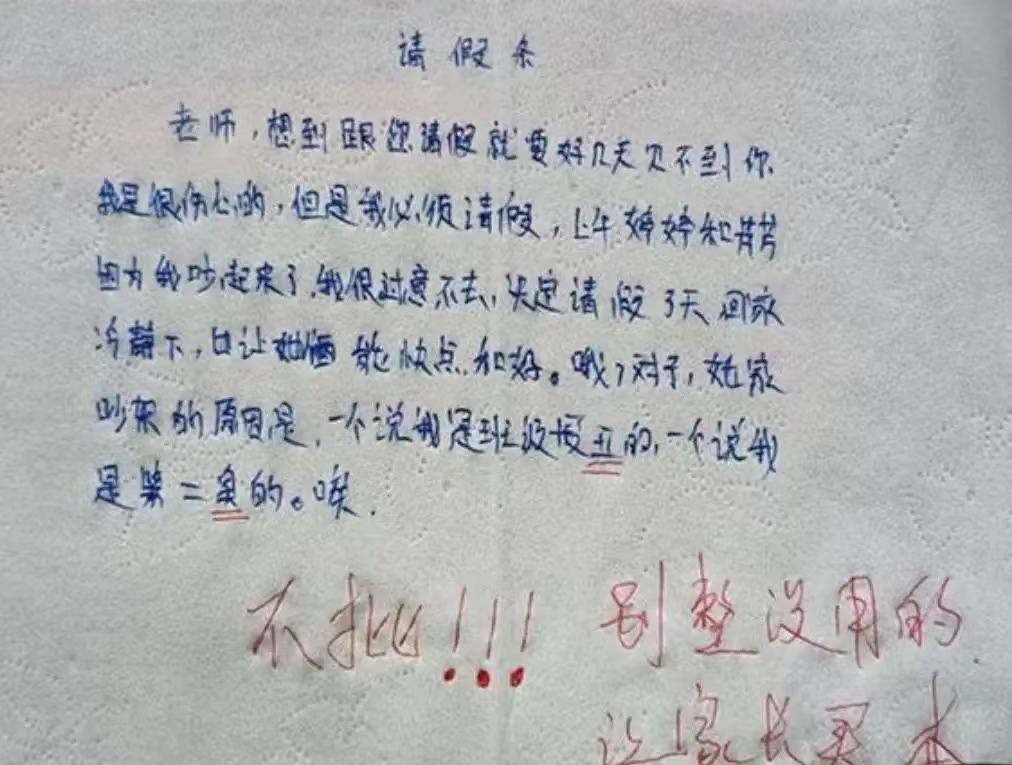 请假条
老师，想到跟您请假就要好几天见不到你
我是很伤心的，但是我必须请假，上午婷婷和芳芳
因为我吵起来了，我很过意不去，决定请假3天回家
冷静下，也让她俩能快点和好。哦，对了，她家
吵架的原因是，一个说我是班级最丑的，一个说我
是第二臭的。唉.
不批!!! 别整没用的
让家长买本